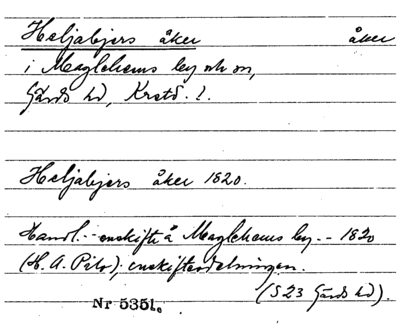 Heljabjers åker åker
i Maglehems by och sn,
Gärds hd, Krstd. l.
Heljabjers åker 1820.
Handl. enskifte å Maglehems by. - 1820
(H. A. ); enskiftesdelningen.
/(S 23 Gärds hd).
Nr 5351.